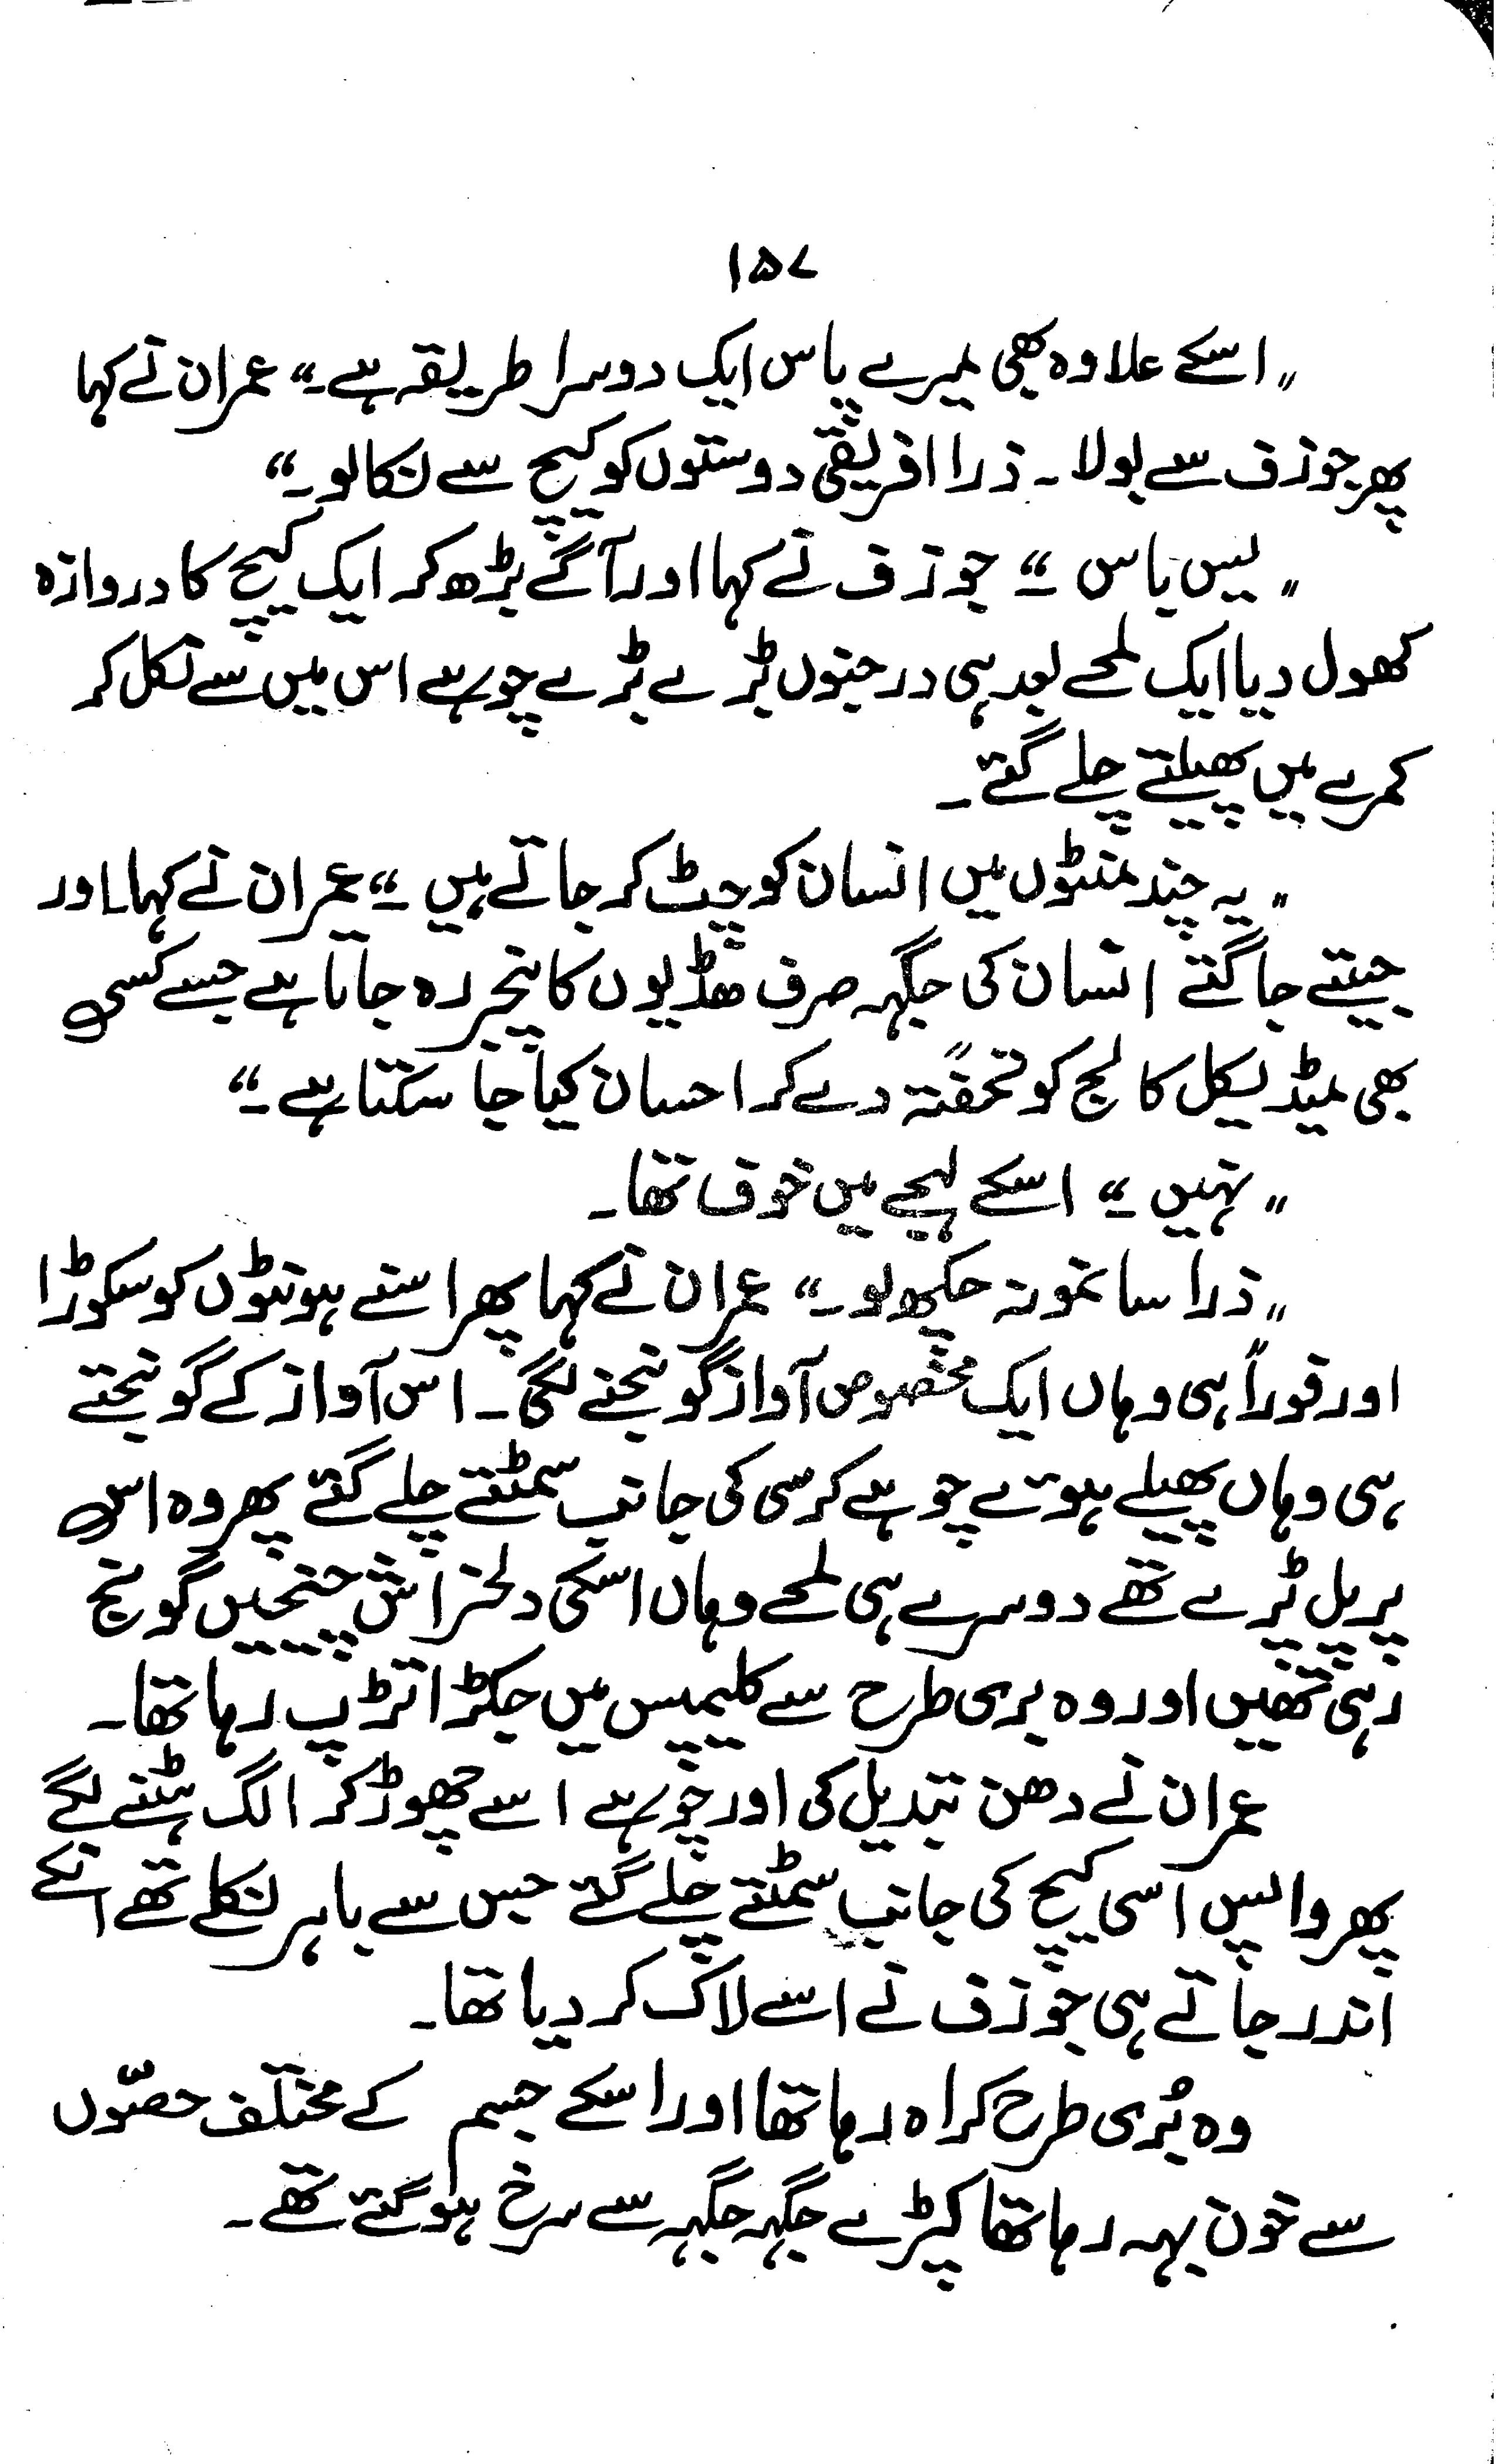 ۱۵۷
"اسکے علاوہ بھی میرے پاس ایک دوسرا طریقہ ہے۔" عمران نے کہا
پھر جوزف سے بولا۔ ذرا افریقی دوستوں کو کیج سے نکالو۔"
"یس باس۔" جوزف نے کہا اور آگے بڑھ کر ایک کیج کا دروازہ
کھول دیا ایک لمحے بعد ہی درجنوں بڑے بڑے چوہے اس میں سے نکل کر
کمرے میں پھیلتے چلے گئے۔
"یہ چند منٹوں میں انسان کو چٹ کر جاتے ہیں۔" عمران نے کہا۔ اور
جیتے جاگتے انسان کی جگہ صرف ہڈیوں کا پنجر رہ جاتا ہے جسے کسی
بھی میڈیکل کالج کو تحفتہً دے کر احسان کیا جا سکتا ہے۔"
"نہیں۔" اسکے لہجے میں خوف تھا۔
"ذرا سا نمونہ چکھ لو۔" عمران نے کہا پھر اسنے ہونٹوں کو سکوڑا
اور فوراً ہی وہاں ایک مخصوص آواز گونجنے لگی۔ اس آواز کے گونجتے
ہی وہاں پھیلے ہوئے چوہے کرسی کی جانب سمٹتے چلے گئے پھر وہ اس
پر پل پڑے تھے دوسرے ہی لمحے وہاں اسکی دلخراش چیخیں گونج
رہی تھیں اور وہ بری طرح سے کلیمپس میں جکڑا تڑپ رہا تھا۔
عمران نے دھن تبدیل کی اور چوہے اسے چھوڑ کر الگ ہٹنے لگے
پھر واپس اسی کیج کی جانب سمٹتے چلے گئے جس سے باہر نکلے تھے انکے
اندر جاتے ہی جوزف نے اسے لاک کر دیا تھا۔
وہ بُری طرح کراہ رہا تھا اور اسکے جسم کے مختلف حصّوں
سے خون بہہ رہا تھا کپڑے جگہ جگہ سے سرخ ہو گئے تھے۔